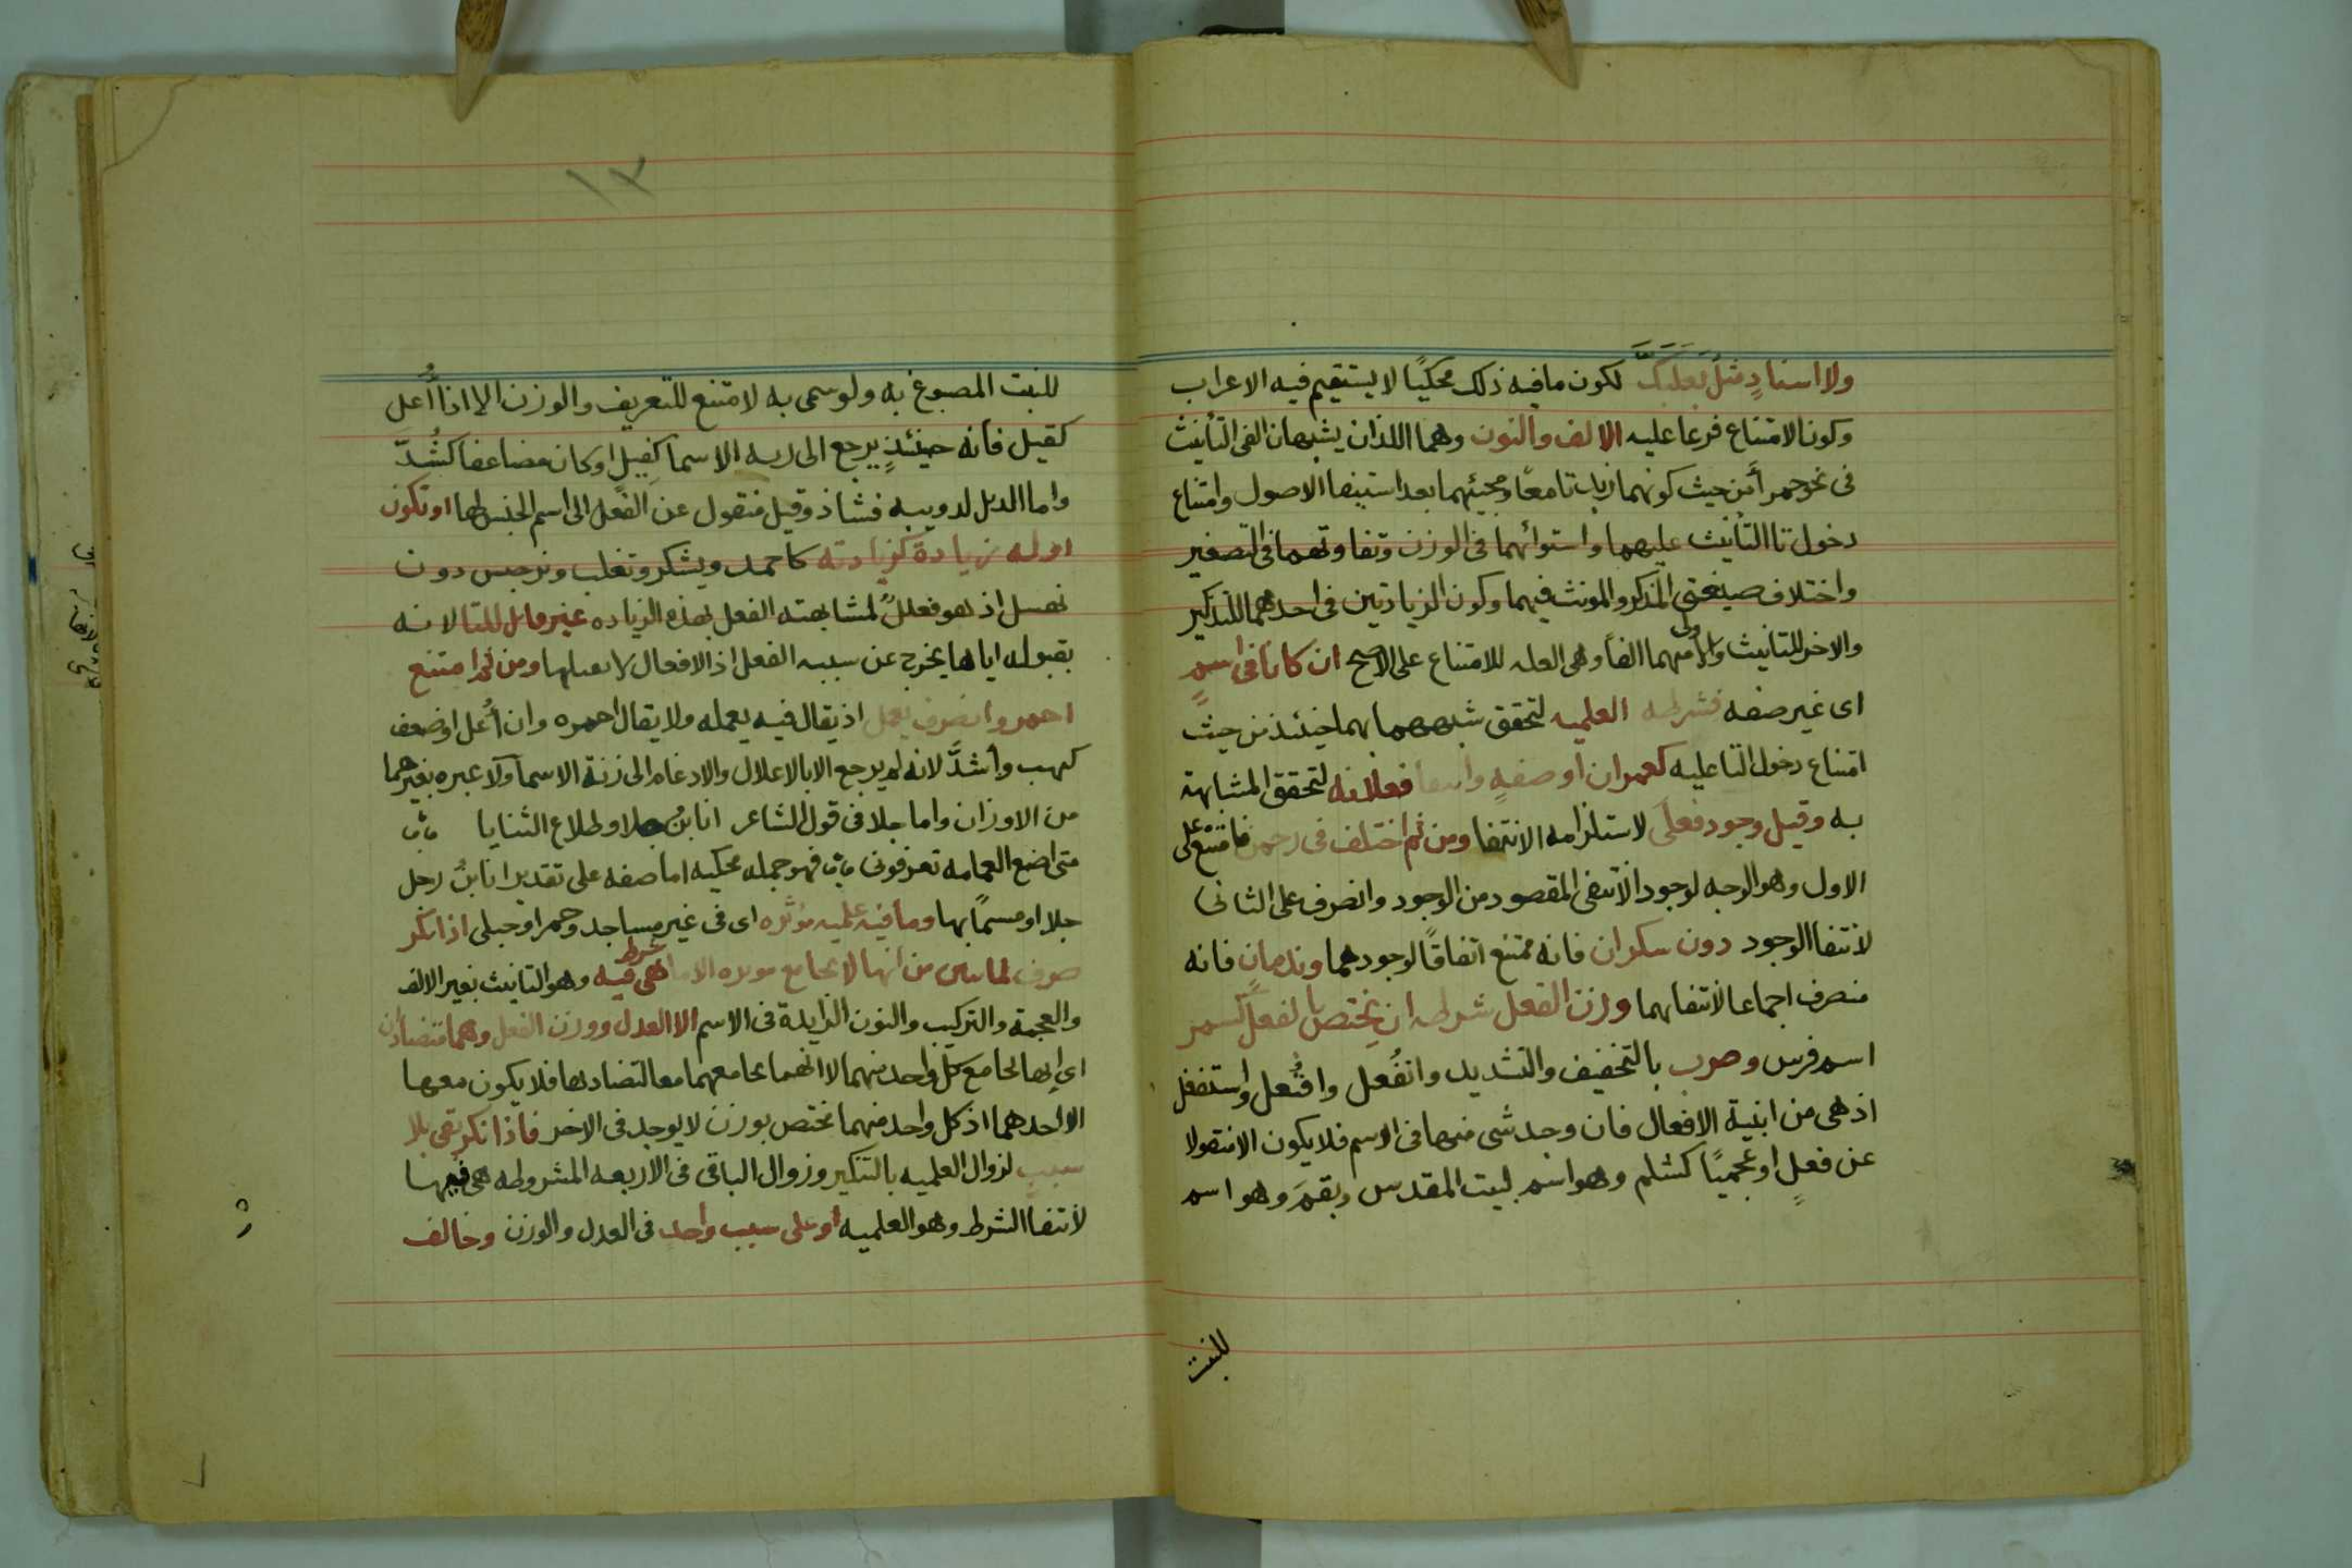 ولا اسنادٍ مثلُ بَعلَبَكَّ لكون ما فيه ذلك محكيًا لا يستقيم فيه الاعراب
وكون الامتناع فرعا عليه الالف والنون وهما اللذان يشبهان الفى التأنيث
فى نحو حمرأ من حيث كونهما زيدتا معًا ومجيئهما بعد استيفا الاصول وامتناع
دخول تا التأنيث عليهما واستوائهما فى الوزن وتفاوتهما فى التصغير
واختلاف صيغتى المذكر والمونث فيهما وكون الزيادتين فى احدهما للتذكير
والاخر للتانيث واولى منهما الفاً وهى العله للامتناع على الاصح ان كانا فى اسمٍ
اى غير صفه فشرطه العلميه لتحقق شبههما بهما حينئذ من حيث
امتناع دخول التا عليه كعمران او صفهٍ وانتفا فعلانه لتحقق المشابهة
به وقيل وجود فعلَى لاستلزامه الانتفا ومن ثم اختلف فى رحمن فامتنع على
الاول وهو الوجه لوجود الانتفى المقصود من الوجود وانصرف على الثانى
لانتفا الوجود دون سكران فانه ممتنع اتفاقًا لوجودهما وندمانٍ فانه
منصرف اجماعا لانتفائهما وزن الفعل شرطه ان يختص بالفعل كشمر
اسم فرس وضرب بالتخفيف والتشديد وانفُعل وافتُعل واستفعل
اذ هى من ابنية الافعال فان وجد شى منها فى الاسم فلا يكون الا منقولا
عن فعلٍ او عجميًا كشلم وهو اسم لبيت المقدس وبقم وهو اسم
للنبت
١٣
للنبت المصبوغ به ولو سمى به لامتنع للتعريف والوزن الا اذا أُعل
كقيل فانه حينئذٍ يرجع الى زنه الاسما كفِيلٍ او كان مضاعفا كشُدَّ
واما الدىل لدويبه فشاذ وقيل منقول عن الفعل الى اسم الجنس لها او تكون
اوله زيادة كزيادته كاحمد ويشكر وتغلب ونرجس دون
نهسل اذ هو فعللٌ لمشابهته الفعل بهذه الزياده غير قابل للتا لانه
بقبوله اياها يخرج عن سببه الفعل اذ الافعال لا تقبلها ومن ثم امتنع
احمر وانصرف يعمل اذ يقال فيه يعمله ولا يقال احمره وان أُعل او ضعف
كهب وأشدَّ لانه لم يرجع الا بالاعلال والادغام الى زنة الاسما ولا عبره بغيرهما
من الاوزان واما جلا فى قول الشاعر انا بنُ جلا وطلاع الثنايا
متى اضع العمامه تعرفونى فهو جمله محكيه اما صفه على تقدير انا بنُ رجل
جلا او مسمًا بها وما فيه علميه مؤثره اى فى غير مساجد وحمرا وحبلى اذا نكر
صرف لما تبين من انها لا تجامع موثره الا ما هى شرط فيه وهو التانيث بغير الالف
والعجمة والتركيب والنون الزايدة فى الاسم الا العدل ووزن الفعل وهما متضادان
اى انها تجامع كل واحد منهما لا انهما تجامعهما معا لتضادهما فلا يكون معها
الا احدهما اذ كل واحد منهما مختص بوزن لا يوجد فى الاخر فاذا نكر بقى بلا
سببٍ لزوال العلميه بالتنكير وزوال الباقى فى الاربعه المشروطه هى فيها
لانتفا الشرط وهو العلميه او على سبب واحد فى العدل والوزن وخالف